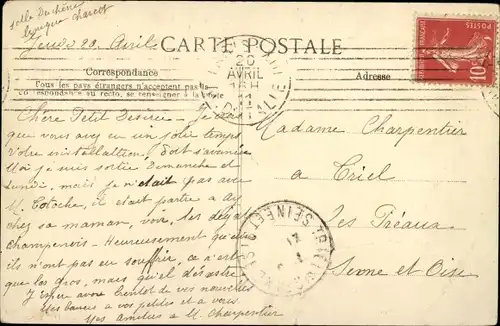 Melle Duchêne
Charcot
Jeudi 20 Avril
CARTE POSTALE
Correspondance
Adresse
Tous les pays étrangers n'acceptent pas la
Correspondance au recto, se renseigner à la Poste
20
AVRIL
11
10
Chère Petit Desirée – Je vois
que vous avez eu un joli temps
Votre installation, doit s'avancer
Moi je suis sortie Dimanche et
Lundi, mais je n'etait pas avec
M. Totoche, il etait partie a Ay
chez sa maman, voir les dégats
Champenois – Heureusement qu'eux
ils n'ont pas eu souffrir, ca n'est
que les gros, mais quel désastre
J'espère avoir bientot de vos nouvelles
Mes baisers a vos petites et a vous
Mes amities a M. Charpentier
Madame Charpentier
a
Triel
Les Préaux
Seine et Oise
TRIEL
SEINE ET OISE
21